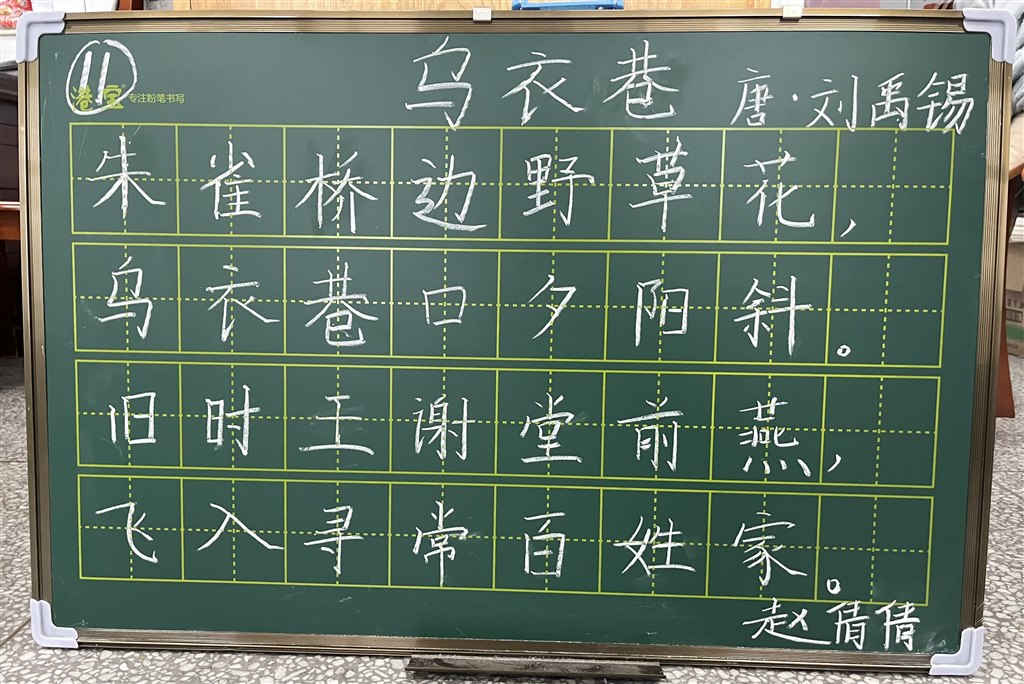 11
专注粉笔书写
乌衣巷 唐·刘禹锡
朱雀桥边野草花，
乌衣巷口夕阳斜。
旧时王谢堂前燕，
飞入寻常百姓家。
赵倩倩